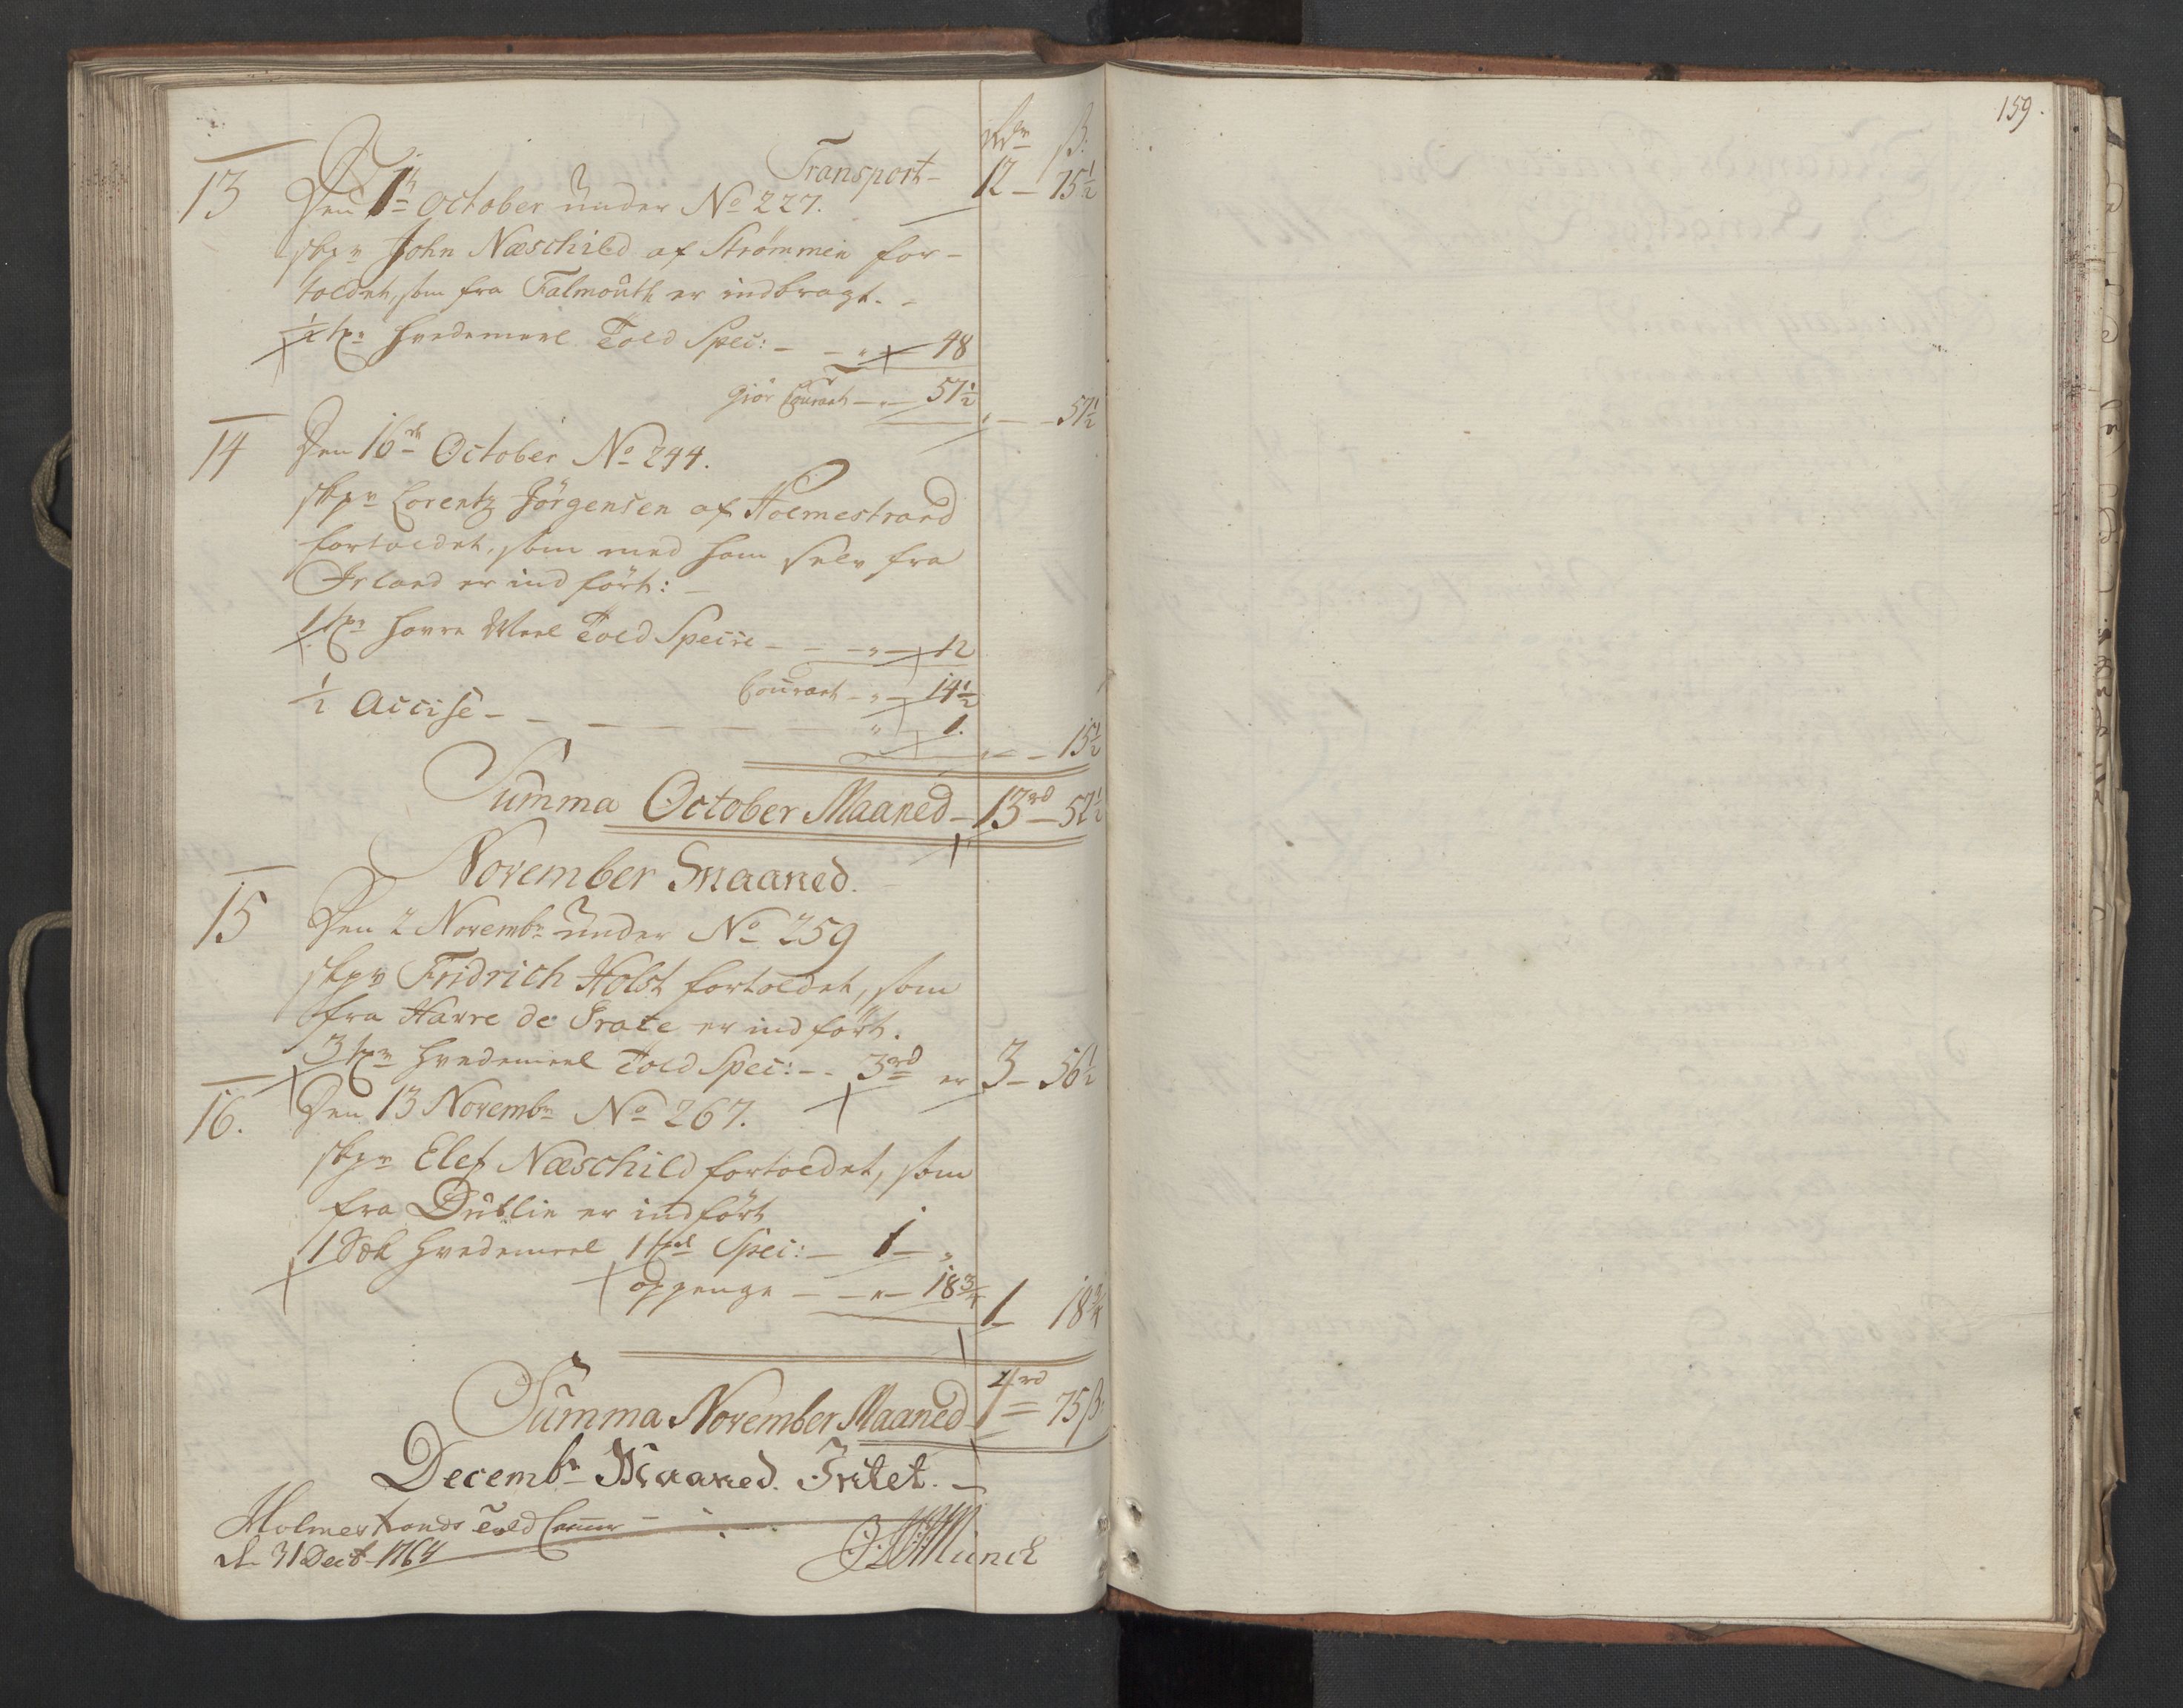 Rdr ß:
Transport - 12 - 75½
13 Den 1te October under No 227.
skpr John Næschild af Strømmen for-
toldet, som fra Falmouth er indbragt. -
½ tr Hvedemeel Told Spec: - - " - 48
giör Courant - " - 57½ " - 57½
14 Den 16de October No 244.
skpr Lorentz Jörgensen af Holmestrand
fortoldet, som med ham selv fra
Irland er ind fört: -
1 tr Havre Meel Told Specie - - - " - 12
Courant - " - 14½
½ Accise - - - - - - " 1. " - 15½
Summa October Maaned - 13rd - 52½
November Maaned.
15 Den 2 Novembr under No 259
skpr Fridrich Holst fortoldet, som
fra Havre de Grace er ind fört.
3 tr Hvedemeel Told Spec: - - 3rd er 3 - 56½
16. Den 13 Novembr No 267.
skpr Elef Næschild fortoldet, som
fra Dublin er indfört
1 Sæk Hvedemeel 1 Spec: - 1 - "
oppenge - - " - 18¾ 1 - 18¾
Summa November Maaned 4rd 75ß:
Decembr Maaned. Intet. -
Holmestrands Told Camer -
d. 31 Decb 1764
Munch
159.